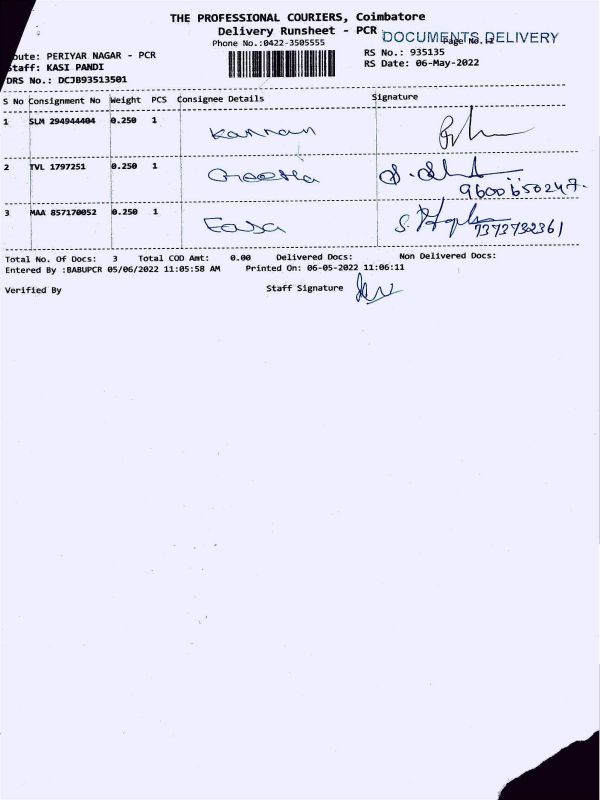 THE PROFESSIONAL COURIERS, Coimbatore
Delivery Runsheet - PCR
DOCUMENTS DELIVERY
Phone No.:0422-3505555
Page No.
oute: PERIYAR NAGAR - PCR
RS No.: 935135
Staff: KASI PANDI
RS Date: 06-May-2022
DRS No.: DCJB93513501
S No Consignment No Weight PCS Consignee Details Signature
1 SLM 294944404 0.250 1 Kannan
2 TVL 1797251 0.250 1 Geetha
9600650247.
3 MAA 857170052 0.250 1
7373732361
Total No. Of Docs: 3 Total COD Amt: 0.00 Delivered Docs: Non Delivered Docs:
Entered By :BABUPCR 05/06/2022 11:05:58 AM Printed On: 06-05-2022 11:06:11
Verified By Staff Signature